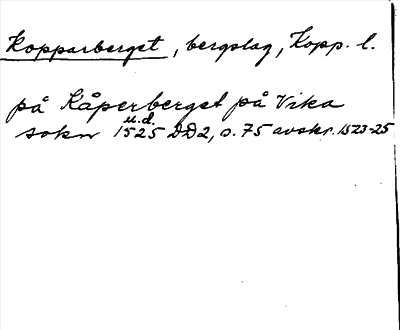 Kopparberget, bergslag, Kopp. l.
på Kåperberget på Vika
u.d.
sokn 1525 DD2, s. 75 avskr. 1523-25